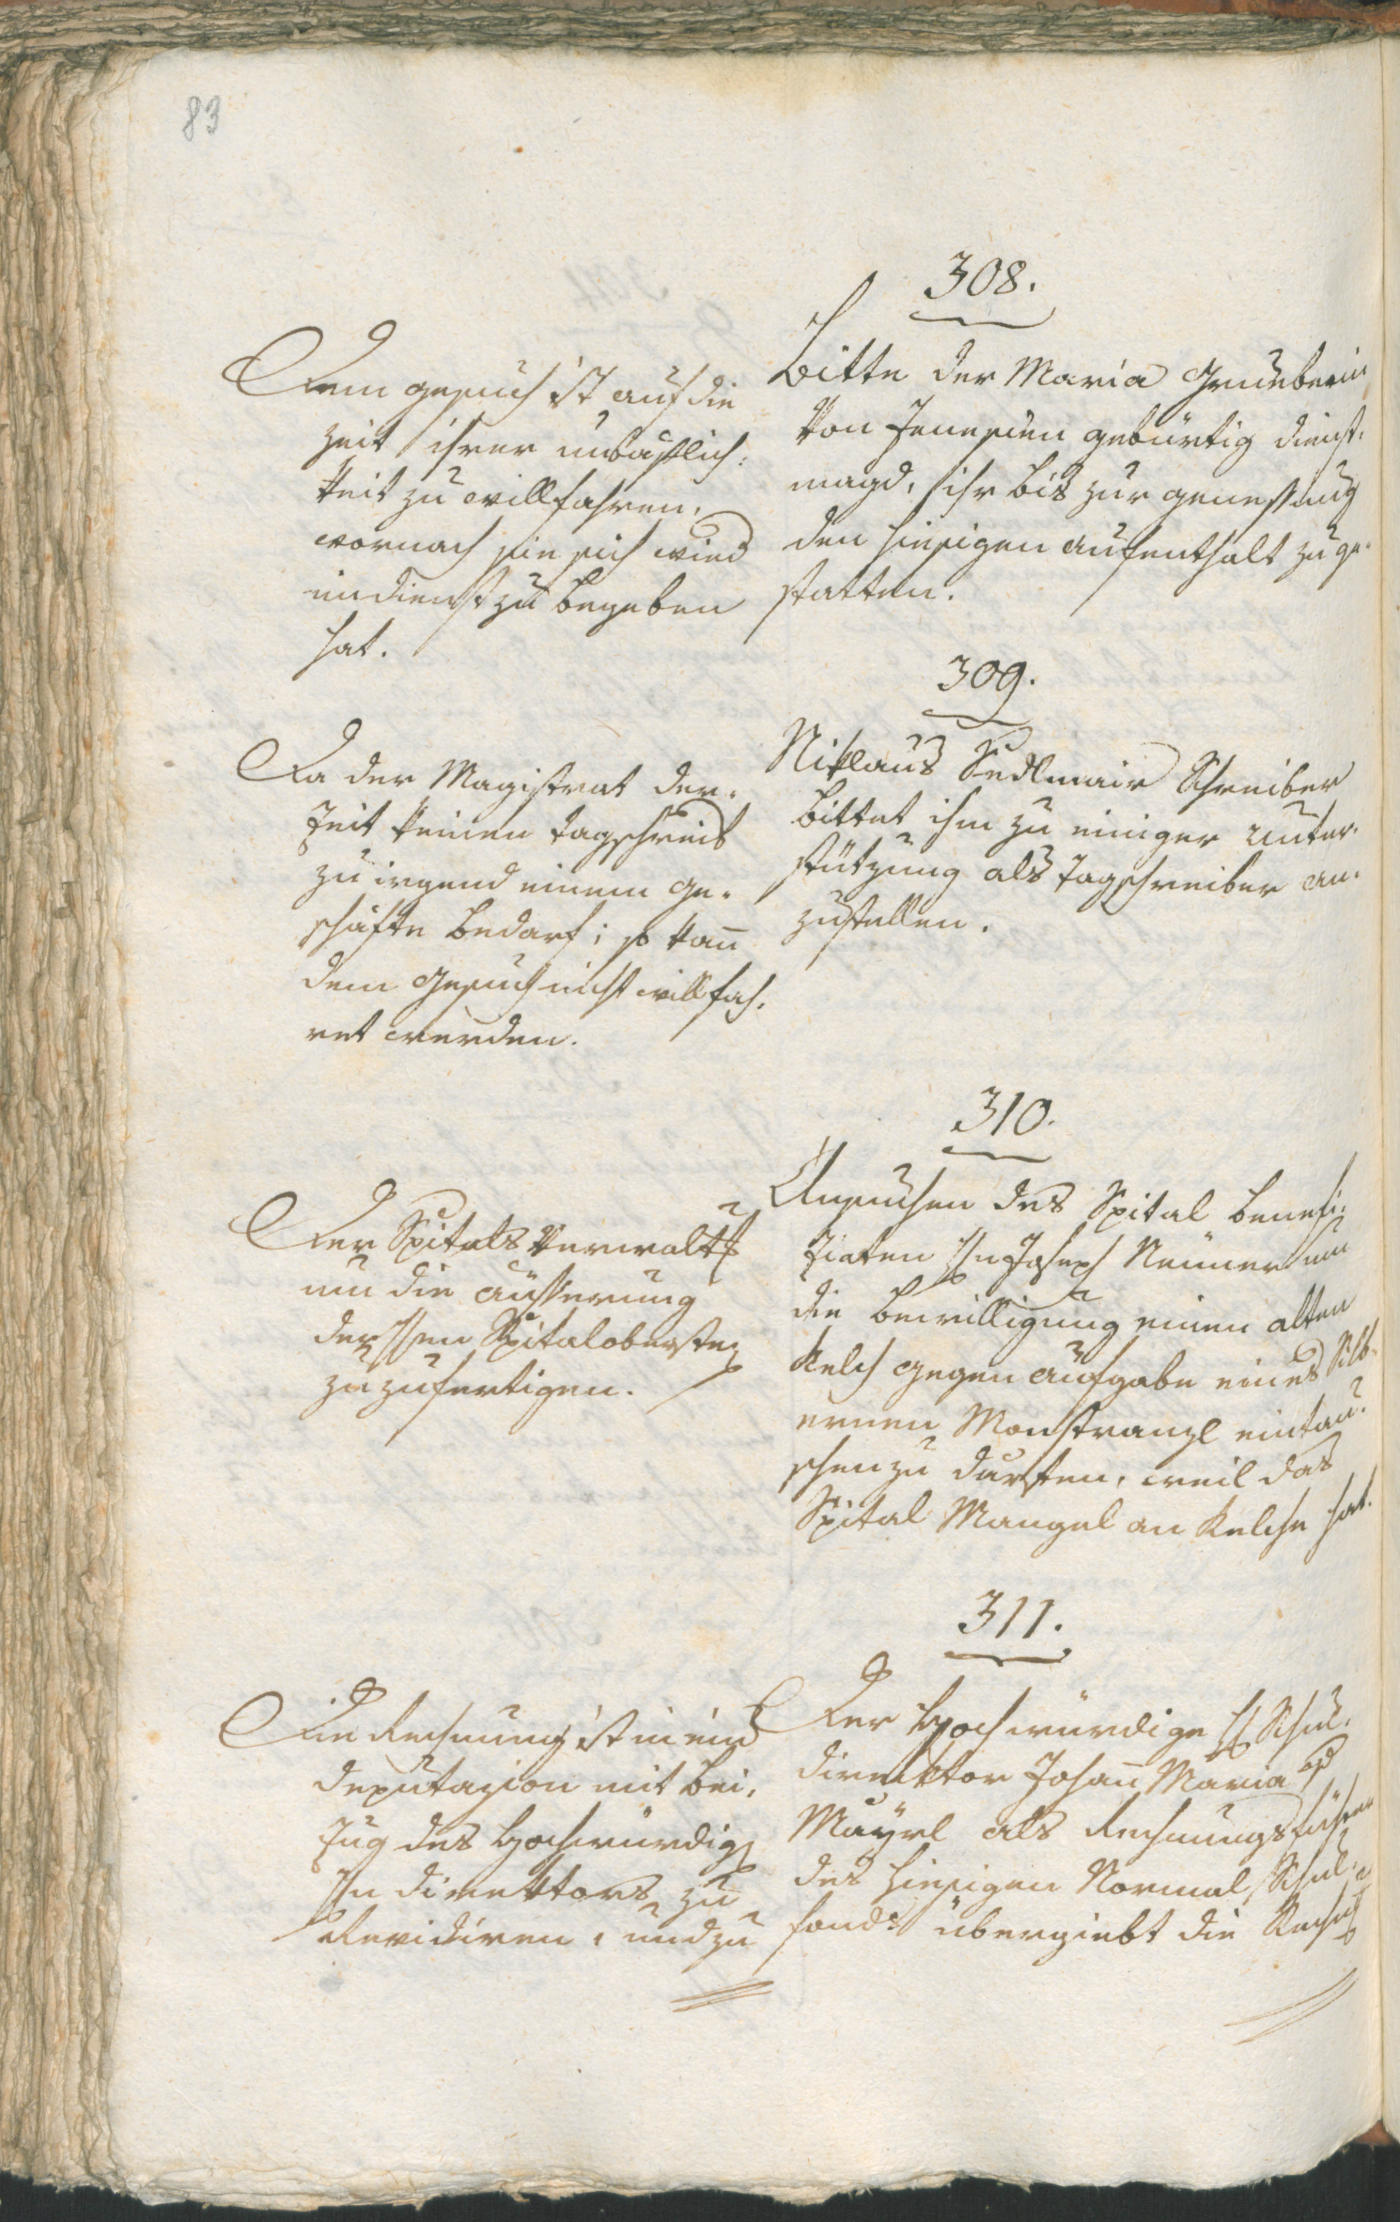 83
308.
Bitte der Maria Grueberin
von Jenesien gebürtig Dienst-
magd, ihr bis zur Genesung
den hiesigen Aufenthalt zu ge-
statten.
Dem Gesuch ist auf die
Zeit ihrer Unbäßlich-
keit zu willfahren,
wornach sie sich wied
in Dienst zu begeben
hat.
309.
Niklaus Sedlmair Schreiber
bittet ihm zu einiger Unter-
stützung als Tagschreiber an-
zustellen.
Da der Magistrat der-
zeit keinen Tagschreib
zu irgend einem Ge-
schäfte bedarf; so kañ
dem Gesuch nicht willfah-
ret werden.
310.
Ansuchen des Spital Benefi-
ziaten Hn Joseph Neuner um
die Bewilligung einen alten
Kelch gegen Aufgabe eines Silb-
ernen Monstranzl eintau-
schen zu dürfen, weil das
Spital Mangel an Kelche hat.
Der Spitals Verwaltg
um die Äusserung
des Hen Spitalobersten
zuzufertigen.
311.
Der Hochwürdige H Schul-
direktor Johañ Maria
Mayrl als Rechnungsführer
des hiesigen Normal Schul-
fonds übergiebt die Rechng
Die Rechnung ist in ein
Deputazion mit Bei-
zug des Hochwürdig
Hn Direktors zu
Revidiren, und zu